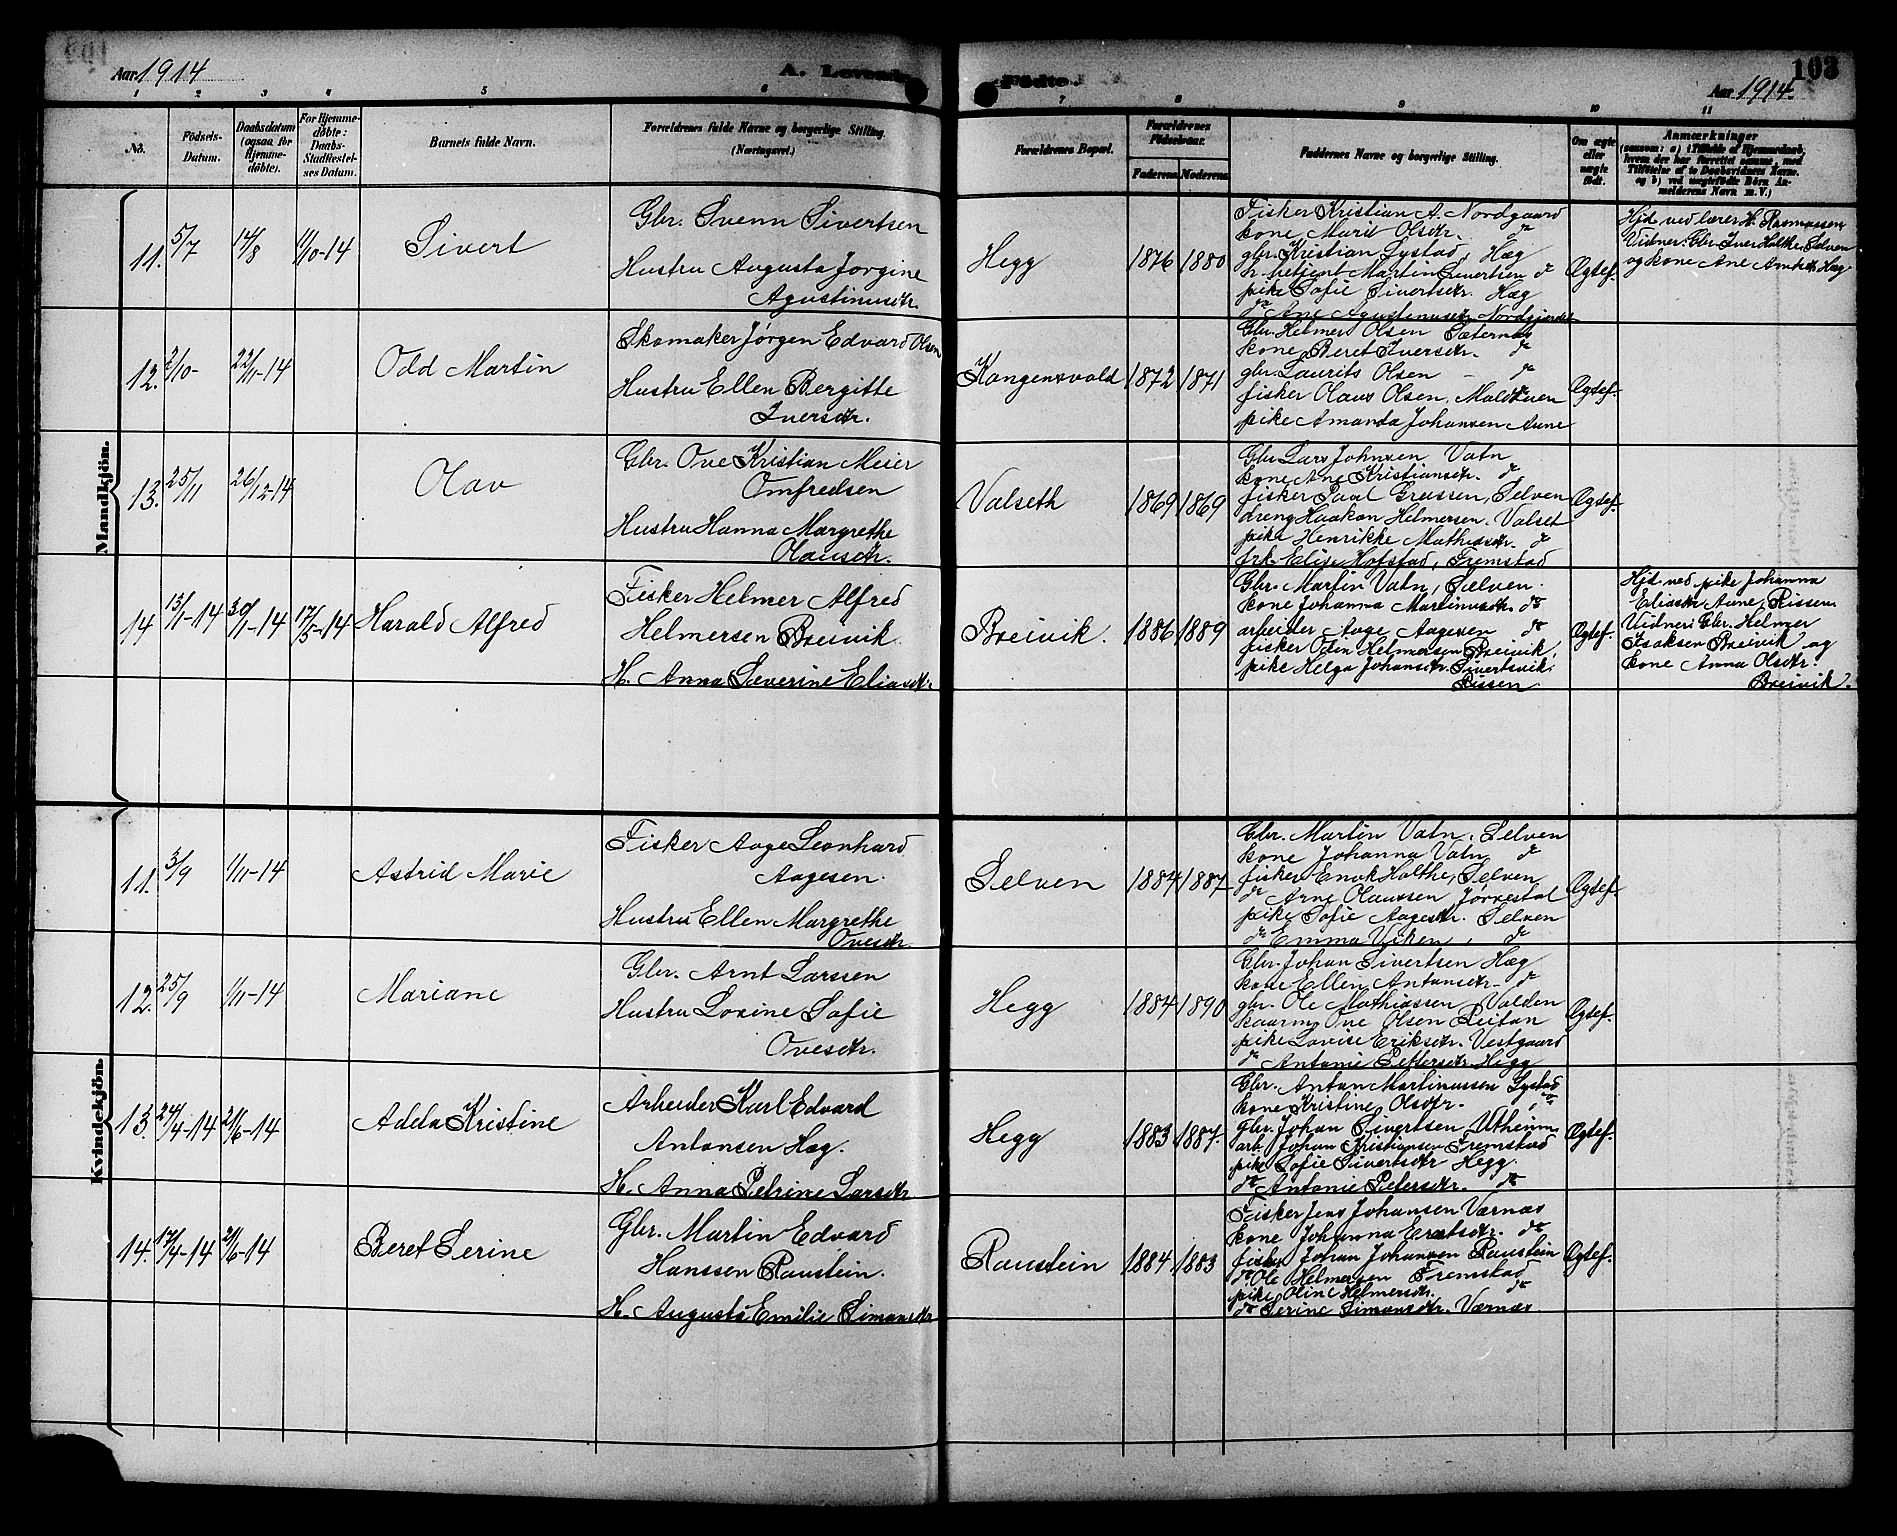 Aar 1914
A. Levende
Fødte.
Aar 1914.
103
1
2
3
4
5
6
7
8
9
10
11
No.
Fødsels-
Datum.
Daabsdatum
(ogsaa for
Hjemme-
døbte).
For Hjemme-
døbte:
Daabs-
Stadfæstel-
ses Datum.
Barnets fulde Navn.
Forældrenes fulde Navne og borgerlige Stilling.
(Næringsvei.)
Forældrenes Bopæl.
Forældrenes
Fødselsaar.
Faderens
Moderens
Faddernes Navne og borgerlige Stilling.
Om ægte
eller
uægte
født.
Anmærkninger
(saasom: a) i Tilfælde af Hjemmedaab,
hvem der har forrettet samme, med
Tilføielse af to Daabsvidners Navne,
og b) ved uægtefødte Børn An-
melderens Navn m. V.)
Mandkjøn.
11.
5/7
14/8
11/10-14
Sivert
Gbr. Svenn Sivertsen
Hustru Augusta Jorgine
Agustinusdtr.
Hegg
1876
1880
Fisker Kristian A. Nordgaard
kone Marit Olsdtr. do
gbr. Kristian Lystad, Hæg
Martin Sivertsen do
pike Sofie Sivertsdtr. Hæg
do Ane Agustinusdtr. Nordfjordet
Ægtef.
Hjd. ved lærer H. Rasmussen
Vidner: Gbr. Iver Holthe, Selven
og kone Ane Arntsdtr. Hæg
12.
2/10-
22/11-14
Odd Martin
Skomaker Jørgen Edvard Olsen
Hustru Ellen Bergitte
Iversdtr.
Kongensvold
1872
1871
Gbr. Helmer Olsen Sæternes
kone Beret Iversdtr. do
gbr. Laurits Olsen - do
fisker Olaus Olsen, Moldtuen
pike Amanda Johansen Aune
Ægtef.
13.
25/11
26/12-14
Olav
Gbr. Ove Kristian Meier
Omfredsen
Hustru Hanna Margrethe
Olausdtr.
Valseth
1869
1869
Gbr. Lars Johnsen Vatn
kone Ane Kristiansdtr. do
fisker Paul Grussen, Selven
dreng Haakon Helmersen. Valset
pike Henrikke Mathisdtr. do
frk. Elise Hofstad, Fremstad
Ægtef.
14
13/1-14
30/1-14
17/5-14
Harald Alfred
Fisker Helmer Alfred
Helmersen Breivik.
H. Anna Severine Eliasdtr.
Breivik.
1886
1889
Gbr. Martin Vatn, Selven.
kone Johanna Martinusdtr. do
arbeider Aage Aagesen do
fisker Odin Helmersen Breivik,
pike Helga Johansdtr. Sivertsvik
Rissen.
Ægtef.
Hjd. ved pike Johanna
Eliasdtr Aune, Rissen
Vidner: Gbr. Helmer
Isaksen Breivik og
kone Anna Olsdtr.
Breivik.
Kvindekjøn.
11.
3/9
1/11-14
Astrid Marie
Fisker Aage Leonhard
Aagesen.
Hustru Ellen Margrethe
Ovesdtr.
Selven
1884
1887
Gbr. Martin Vatn. Selven
kone Johanna Vatn do
fisker Enok Holthe, Selven
do Arne Olaussen Jørrestol
pike Sofie Aagesdtr. Selven
do Emma Viken, do
Ægtef.
12.
25/9
1/11-14
Mariane
Gbr. Arnt Larssen
Hustru Lovine Sofie
Ovesdtr.
Hegg
1884
1890
Gbr. Johan Sivertsen Hæg
kone Ellen Antonsdtr. do
gbr. Ole Mathiassen Valden
kaarm. Ove Olsen Reitan
pike Lovise Eriksdtr. Vestgaard
do Antonie Pettersdtr. Hegg
Ægtef.
13.
24/4-14
21/6-14
Adela Kristine
Arbeider Karl Edvard
Antonsen Hæg.
H. Anna Petrine Larsdtr.
Hegg
1883
1887.
Gbr. Anton Martinussen Lystad
kone Kristine Olsdtr. do
Gbr. Johan Sivertsen Utheim
arb. Johan Kristiansen Fremstad
pike Sofie Sivertsdtr Hegg.
do Antonie Petersdtr. do
Ægtef.
14.
17/4-14
21/6-14
Beret Serine
Gbr. Martin Edvard
Hanssen Raustein.
H. Augusta Emilie Simonsdtr
Raustein
1884
1883
Fisker Jens Johansen Værnes
kone Johanna Erntsdtr. do
fisker Johan Johansen Raustein
do Ole Helmersen Fremstad
pike Oline Helmersdtr. do
do Serine Simonsdtr. Værnes
Ægtef.